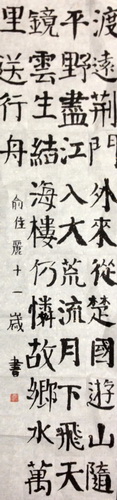 渡遠荆門外來從楚國遊山隨
平野盡江入大荒流月下飛天
鏡雲生結海樓仍憐故鄉水萬
里送行舟
俞佳麗十一歲書